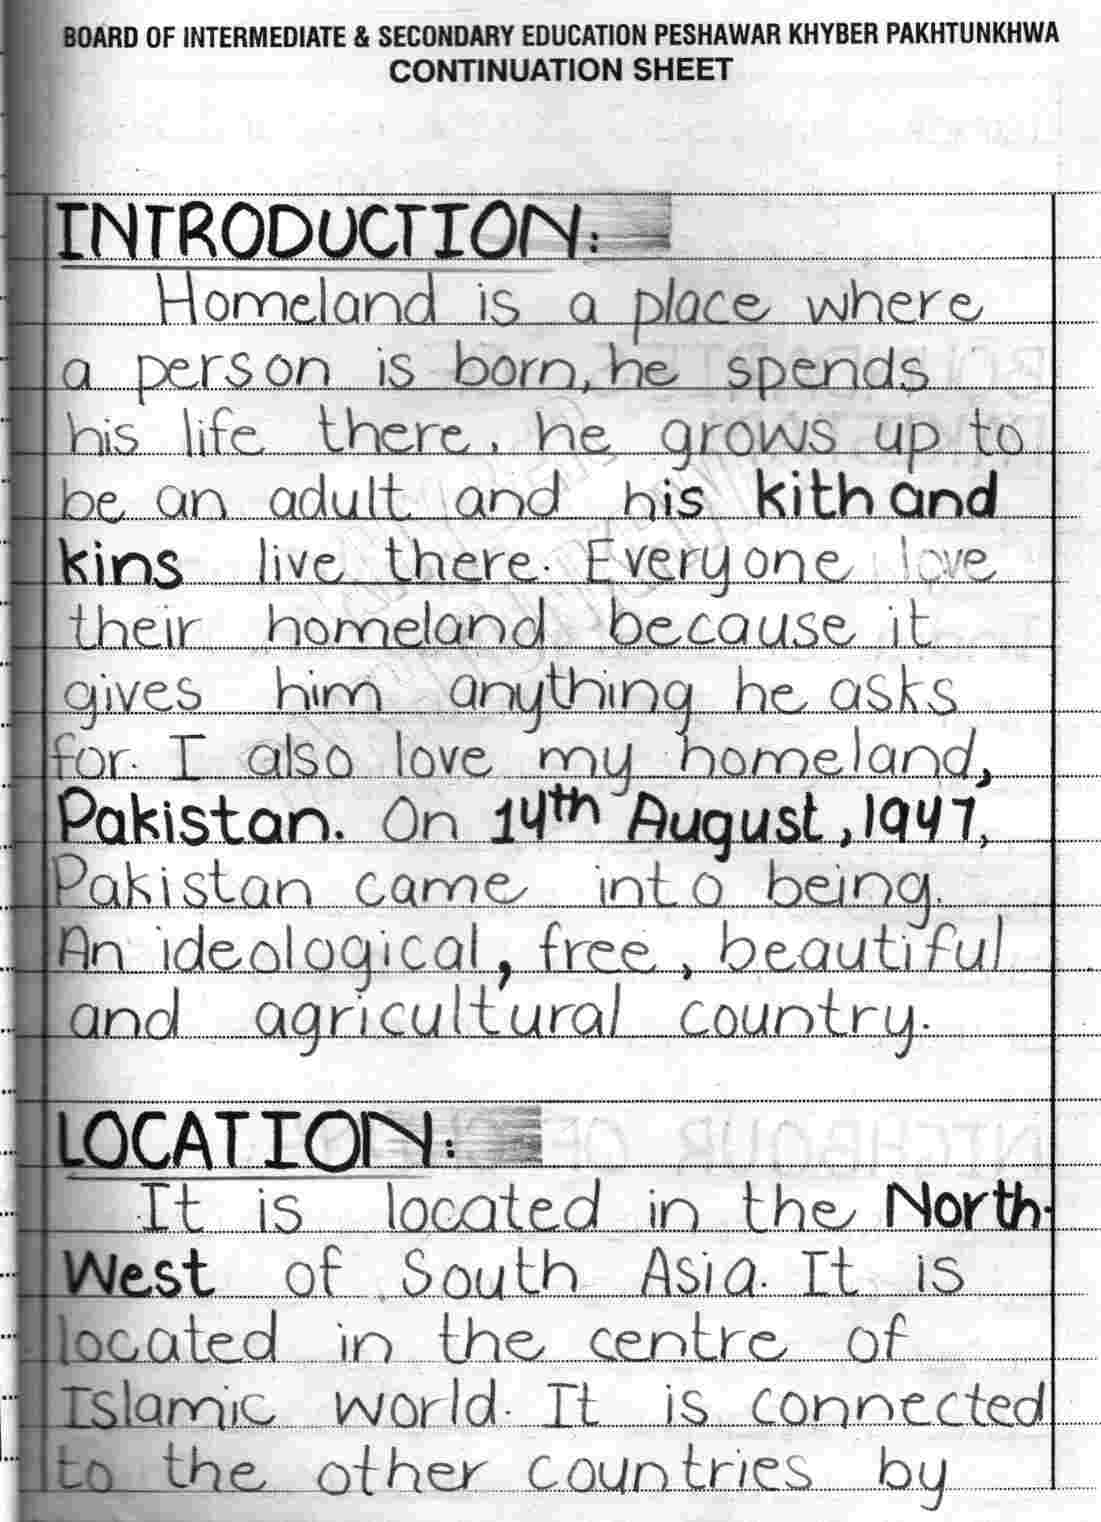 BOARD OF INTERMEDIATE & SECONDARY EDUCATION PESHAWAR KHYBER PAKHTUNKHWA
CONTINUATION SHEET
INTRODUCTION:
Homeland is a place where
a person is born, he spends
his life there, he grows up to
be an adult and his kith and
kins live there. Everyone love
their homeland because it
gives him anything he asks
for. I also love my homeland,
Pakistan. On 14th August, 1947,
Pakistan came into being.
An ideological, free, beautiful
and agricultural country.
LOCATION:
It is located in the North-
West of South Asia. It is
located in the centre of
Islamic world. It is connected
to the other countries by